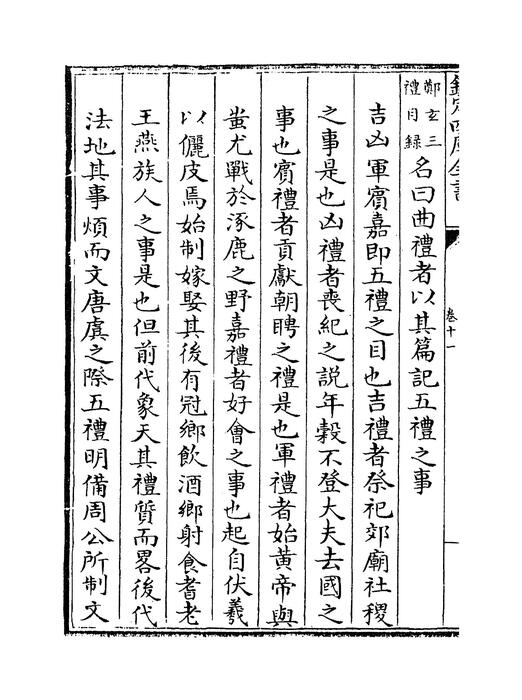 欽定四庫全書
卷十一
鄭𤣥三禮目録名曰曲禮者以其篇記五禮之事
吉凶軍賓嘉即五禮之目也吉禮者祭祀郊廟社稷
之事是也凶禮者喪紀之説年榖不登大夫去國之
事也賓禮者貢獻朝聘之禮是也軍禮者始黄帝與
蚩尤戰於涿鹿之野嘉禮者好㑹之事也起自伏羲
以儷皮焉始制嫁娶其後有冠鄉飲酒鄉射食耆老
王燕族人之事是也但前代象天其禮質而畧後代
法地其事煩而文唐虞之際五禮明備周公所制文